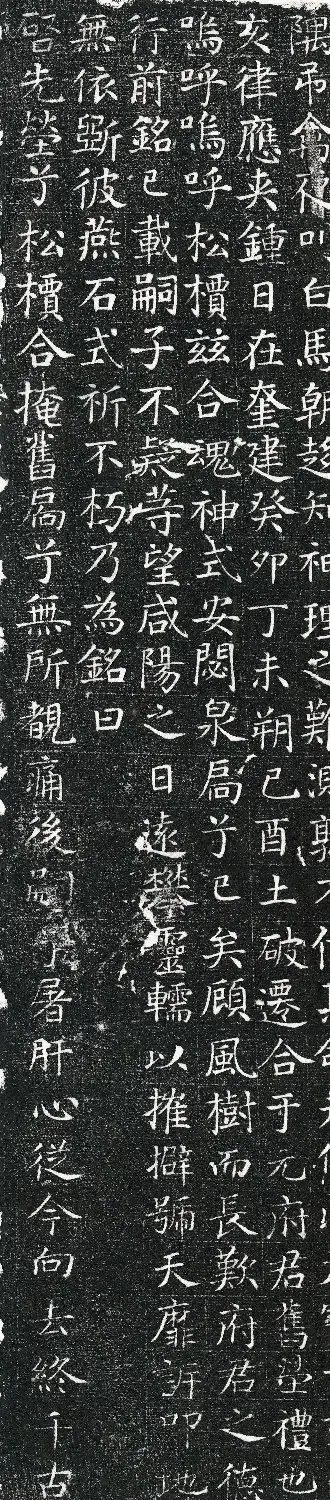 隅弔禽夜叫白馬朝趍知神理之難
亥律應夹鍾日在奎建癸卯丁未朔己酉土破遷合于元府君舊塋禮也
嗚呼嗚呼松檟兹合魂神式安閟泉扄兮已矣顧風樹而長歎府君之德
行前銘已載嗣子不疑等望咸陽之日遠攀靈轜以摧擗號天靡訴叩地
無依斲彼燕石式祈不朽乃為銘曰
啓先塋兮松檟合掩舊扄兮無所覩痛後嗣兮屠肝心從今向去終千古